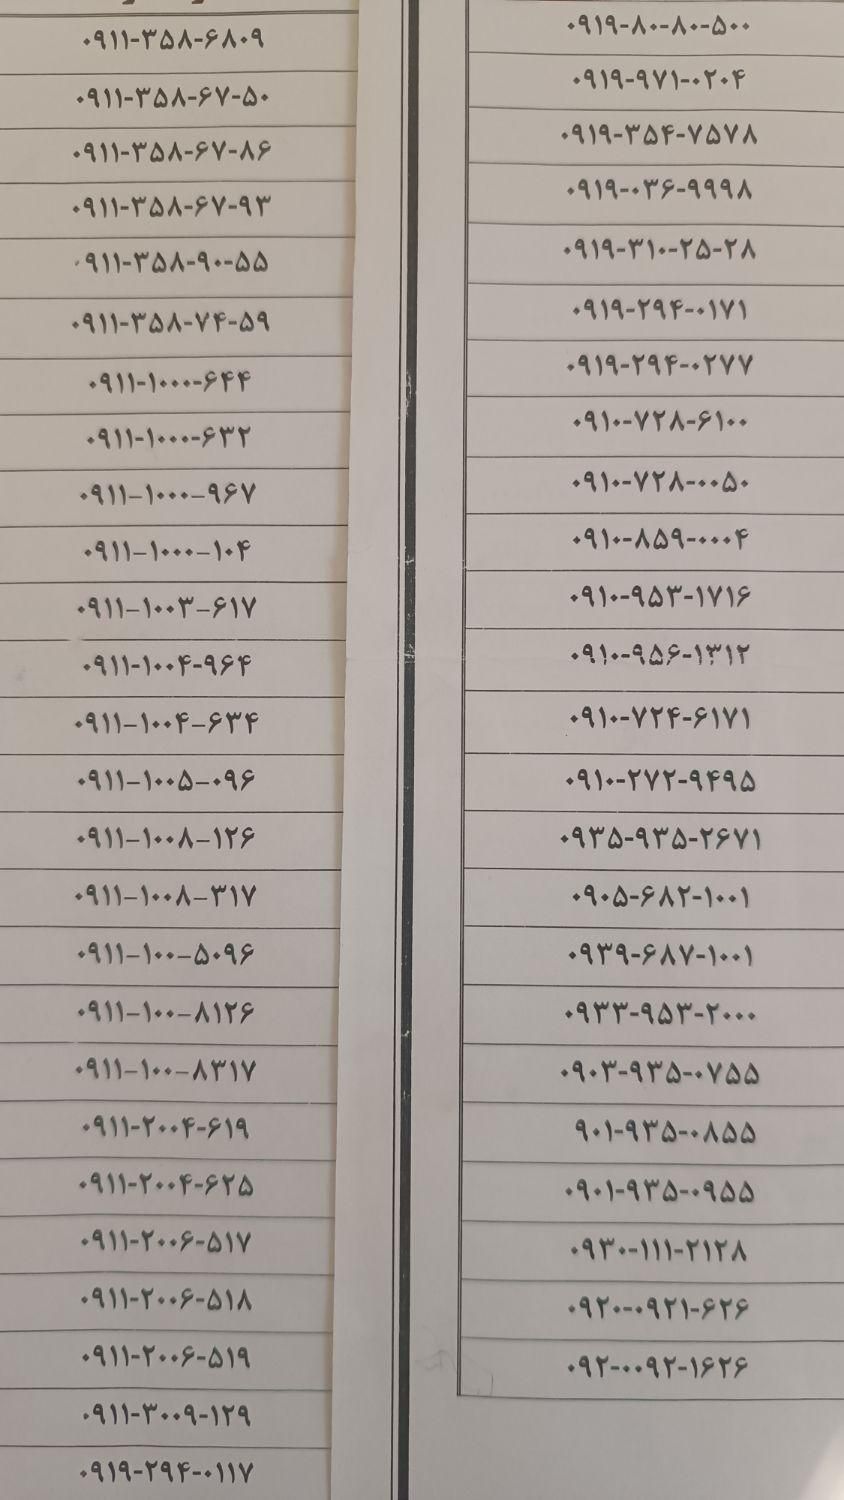 ۰۹۱۱-۳۵۸-۶۸۰۹
۰۹۱۱-۳۵۸-۶۷-۵۰
۰۹۱۱-۳۵۸-۶۷-۸۶
۰۹۱۱-۳۵۸-۶۷-۹۳
۰۹۱۱-۳۵۸-۹۰-۵۵
۰۹۱۱-۳۵۸-۷۴-۵۹
۰۹۱۱-۱۰۰۰-۶۴۴
۰۹۱۱-۱۰۰۰-۶۳۲
۰۹۱۱-۱۰۰۰-۹۶۷
۰۹۱۱-۱۰۰۰-۱۰۴
۰۹۱۱-۱۰۰۳-۶۱۷
۰۹۱۱-۱۰۰۴-۹۶۴
۰۹۱۱-۱۰۰۴-۶۳۴
۰۹۱۱-۱۰۰۵-۰۹۶
۰۹۱۱-۱۰۰۸-۱۲۶
۰۹۱۱-۱۰۰۸-۳۱۷
۰۹۱۱-۱۰۰-۵۰۹۶
۰۹۱۱-۱۰۰-۸۱۲۶
۰۹۱۱-۱۰۰-۸۳۱۷
۰۹۱۱-۲۰۰۴-۶۱۹
۰۹۱۱-۲۰۰۴-۶۲۵
۰۹۱۱-۲۰۰۶-۵۱۷
۰۹۱۱-۲۰۰۶-۵۱۸
۰۹۱۱-۲۰۰۶-۵۱۹
۰۹۱۱-۳۰۰۹-۱۲۹
۰۹۱۹-۲۹۴-۰۱۱۷
۰۹۱۹-۸۰-۸۰-۵۰۰
۰۹۱۹-۹۷۱-۰۲۰۴
۰۹۱۹-۳۵۴-۷۵۷۸
۰۹۱۹-۰۳۶-۹۹۹۸
۰۹۱۹-۳۱۰-۲۵-۲۸
۰۹۱۹-۲۹۴-۰۱۷۱
۰۹۱۹-۲۹۴-۰۲۷۷
۰۹۱۰-۷۲۸-۶۱۰۰
۰۹۱۰-۷۲۸-۰۰۵۰
۰۹۱۰-۸۵۹-۰۰۰۴
۰۹۱۰-۹۵۳-۱۷۱۶
۰۹۱۰-۹۵۶-۱۳۱۲
۰۹۱۰-۷۲۴-۶۱۷۱
۰۹۱۰-۲۷۲-۹۴۹۵
۰۹۳۵-۹۳۵-۲۶۷۱
۰۹۰۵-۶۸۲-۱۰۰۱
۰۹۳۹-۶۸۷-۱۰۰۱
۰۹۳۳-۹۵۳-۲۰۰۰
۰۹۰۳-۹۳۵-۰۷۵۵
۹۰۱-۹۳۵-۰۸۵۵
۰۹۰۱-۹۳۵-۰۹۵۵
۰۹۳۰-۱۱۱-۲۱۲۸
۰۹۲۰-۰۹۲۱-۶۲۶
۰۹۲-۰۰۹۲-۱۶۲۶